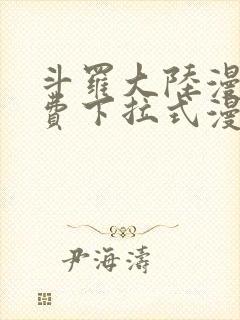 斗羅大陸漫
費下拉式漫
尹海濤